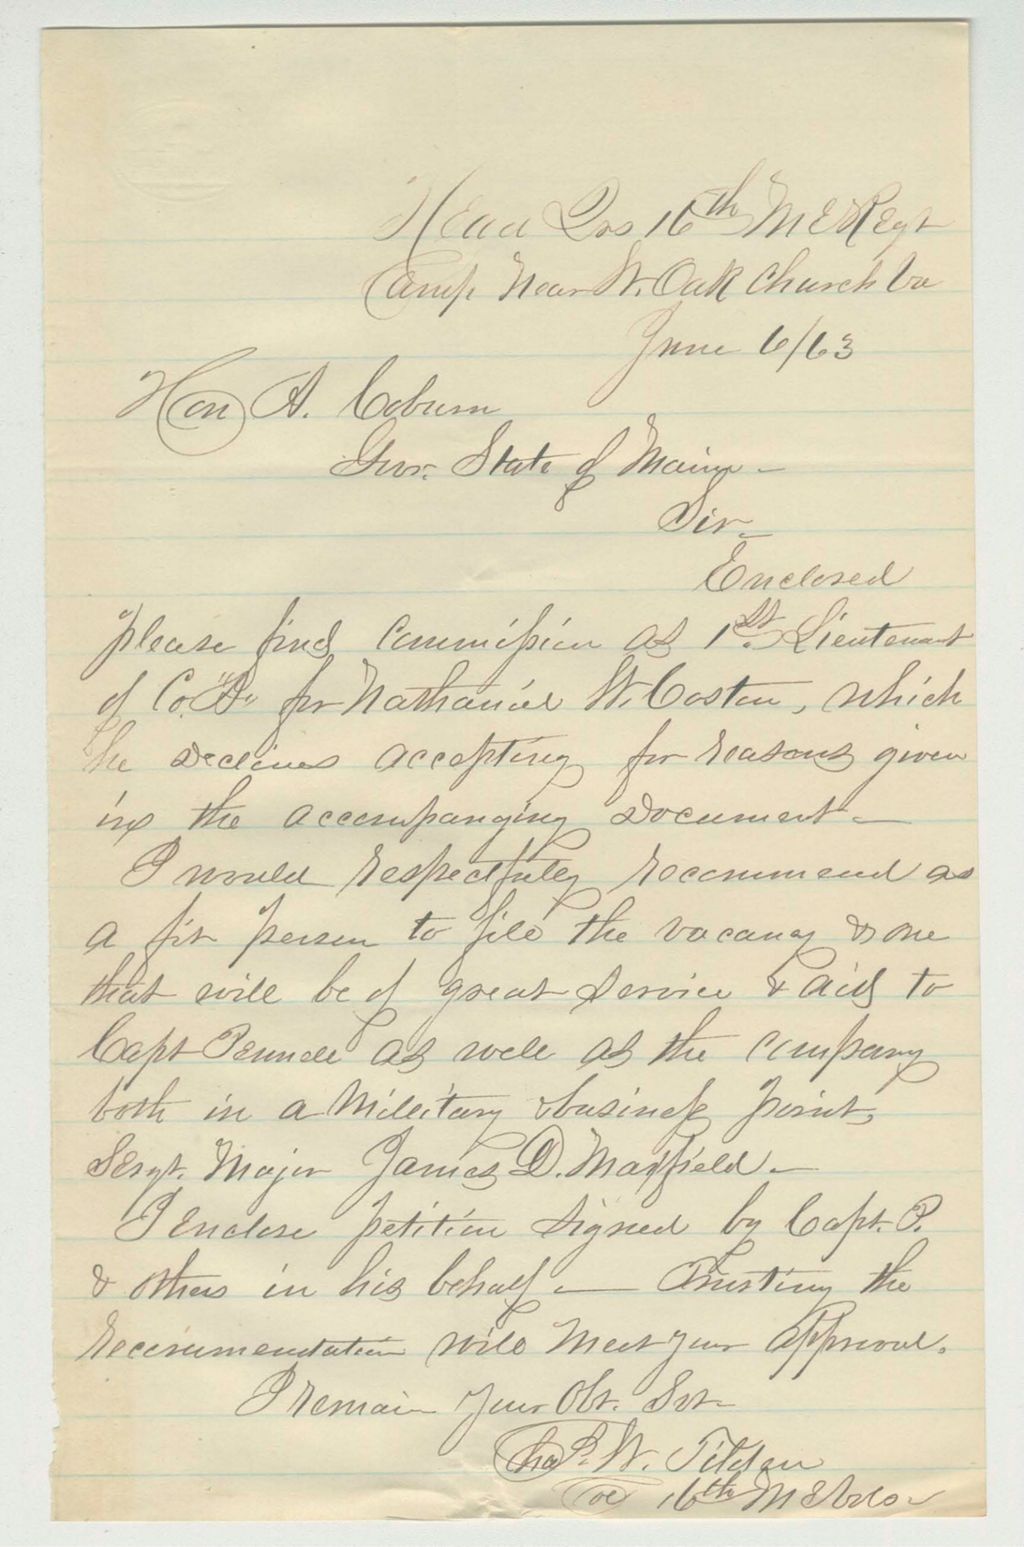 Head Qrs 16th ME Regt
Camp Near W. Oak Church Va
June 6/63
Hon A. Coburn
Gov. State of Maine -
Sir -
Enclosed
please find commission as 1st. Lieutenant
of Co. "B" for Nathaniel W. Coston, which
he declines accepting for reasons given
in the accompanying document -
I would respectfully recommend as
a fit person to fill the vacancy & one
that will be of great service & aid to
Capt Pennell as well as the company
both in a Military & business point,
Sergt. Major James D. Maxfield. -
I Enclose petition signed by Capt. P.
& others in his behalf - Trusting the
recommendation will meet your approval.
I remain Your Obt. Svt -
Chas. W. Tilden
Col 16th ME Vols -